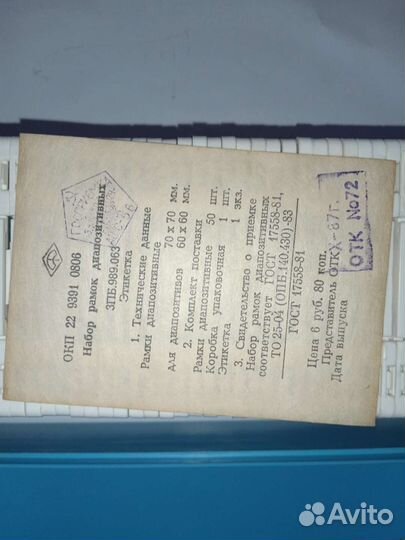 ОКП 22 9391 0806
Набор рамок диапозитивных
3ПБ.989.063
Этикетка
1. Технические данные
Рамки диапозитивные
для диапозитивов 70 х 70 мм.
60 х 80 мм.
2. Комплект поставки
Рамки диапозитивные 50 шт.
Коробка упаковочная 1 шт.
Этикетка 1 экз.
3. Свидетельство о приемке
Набор рамок диапозитивных
соответствует ГОСТ 17558-81,
ТО 25-04 (ОПБ.140.430)-83
ГОСТ 17558-81
Цена 6 руб. 80 коп.
Представитель ОТК
Дата выпуска
X-87г.
ОТК №72
Avito